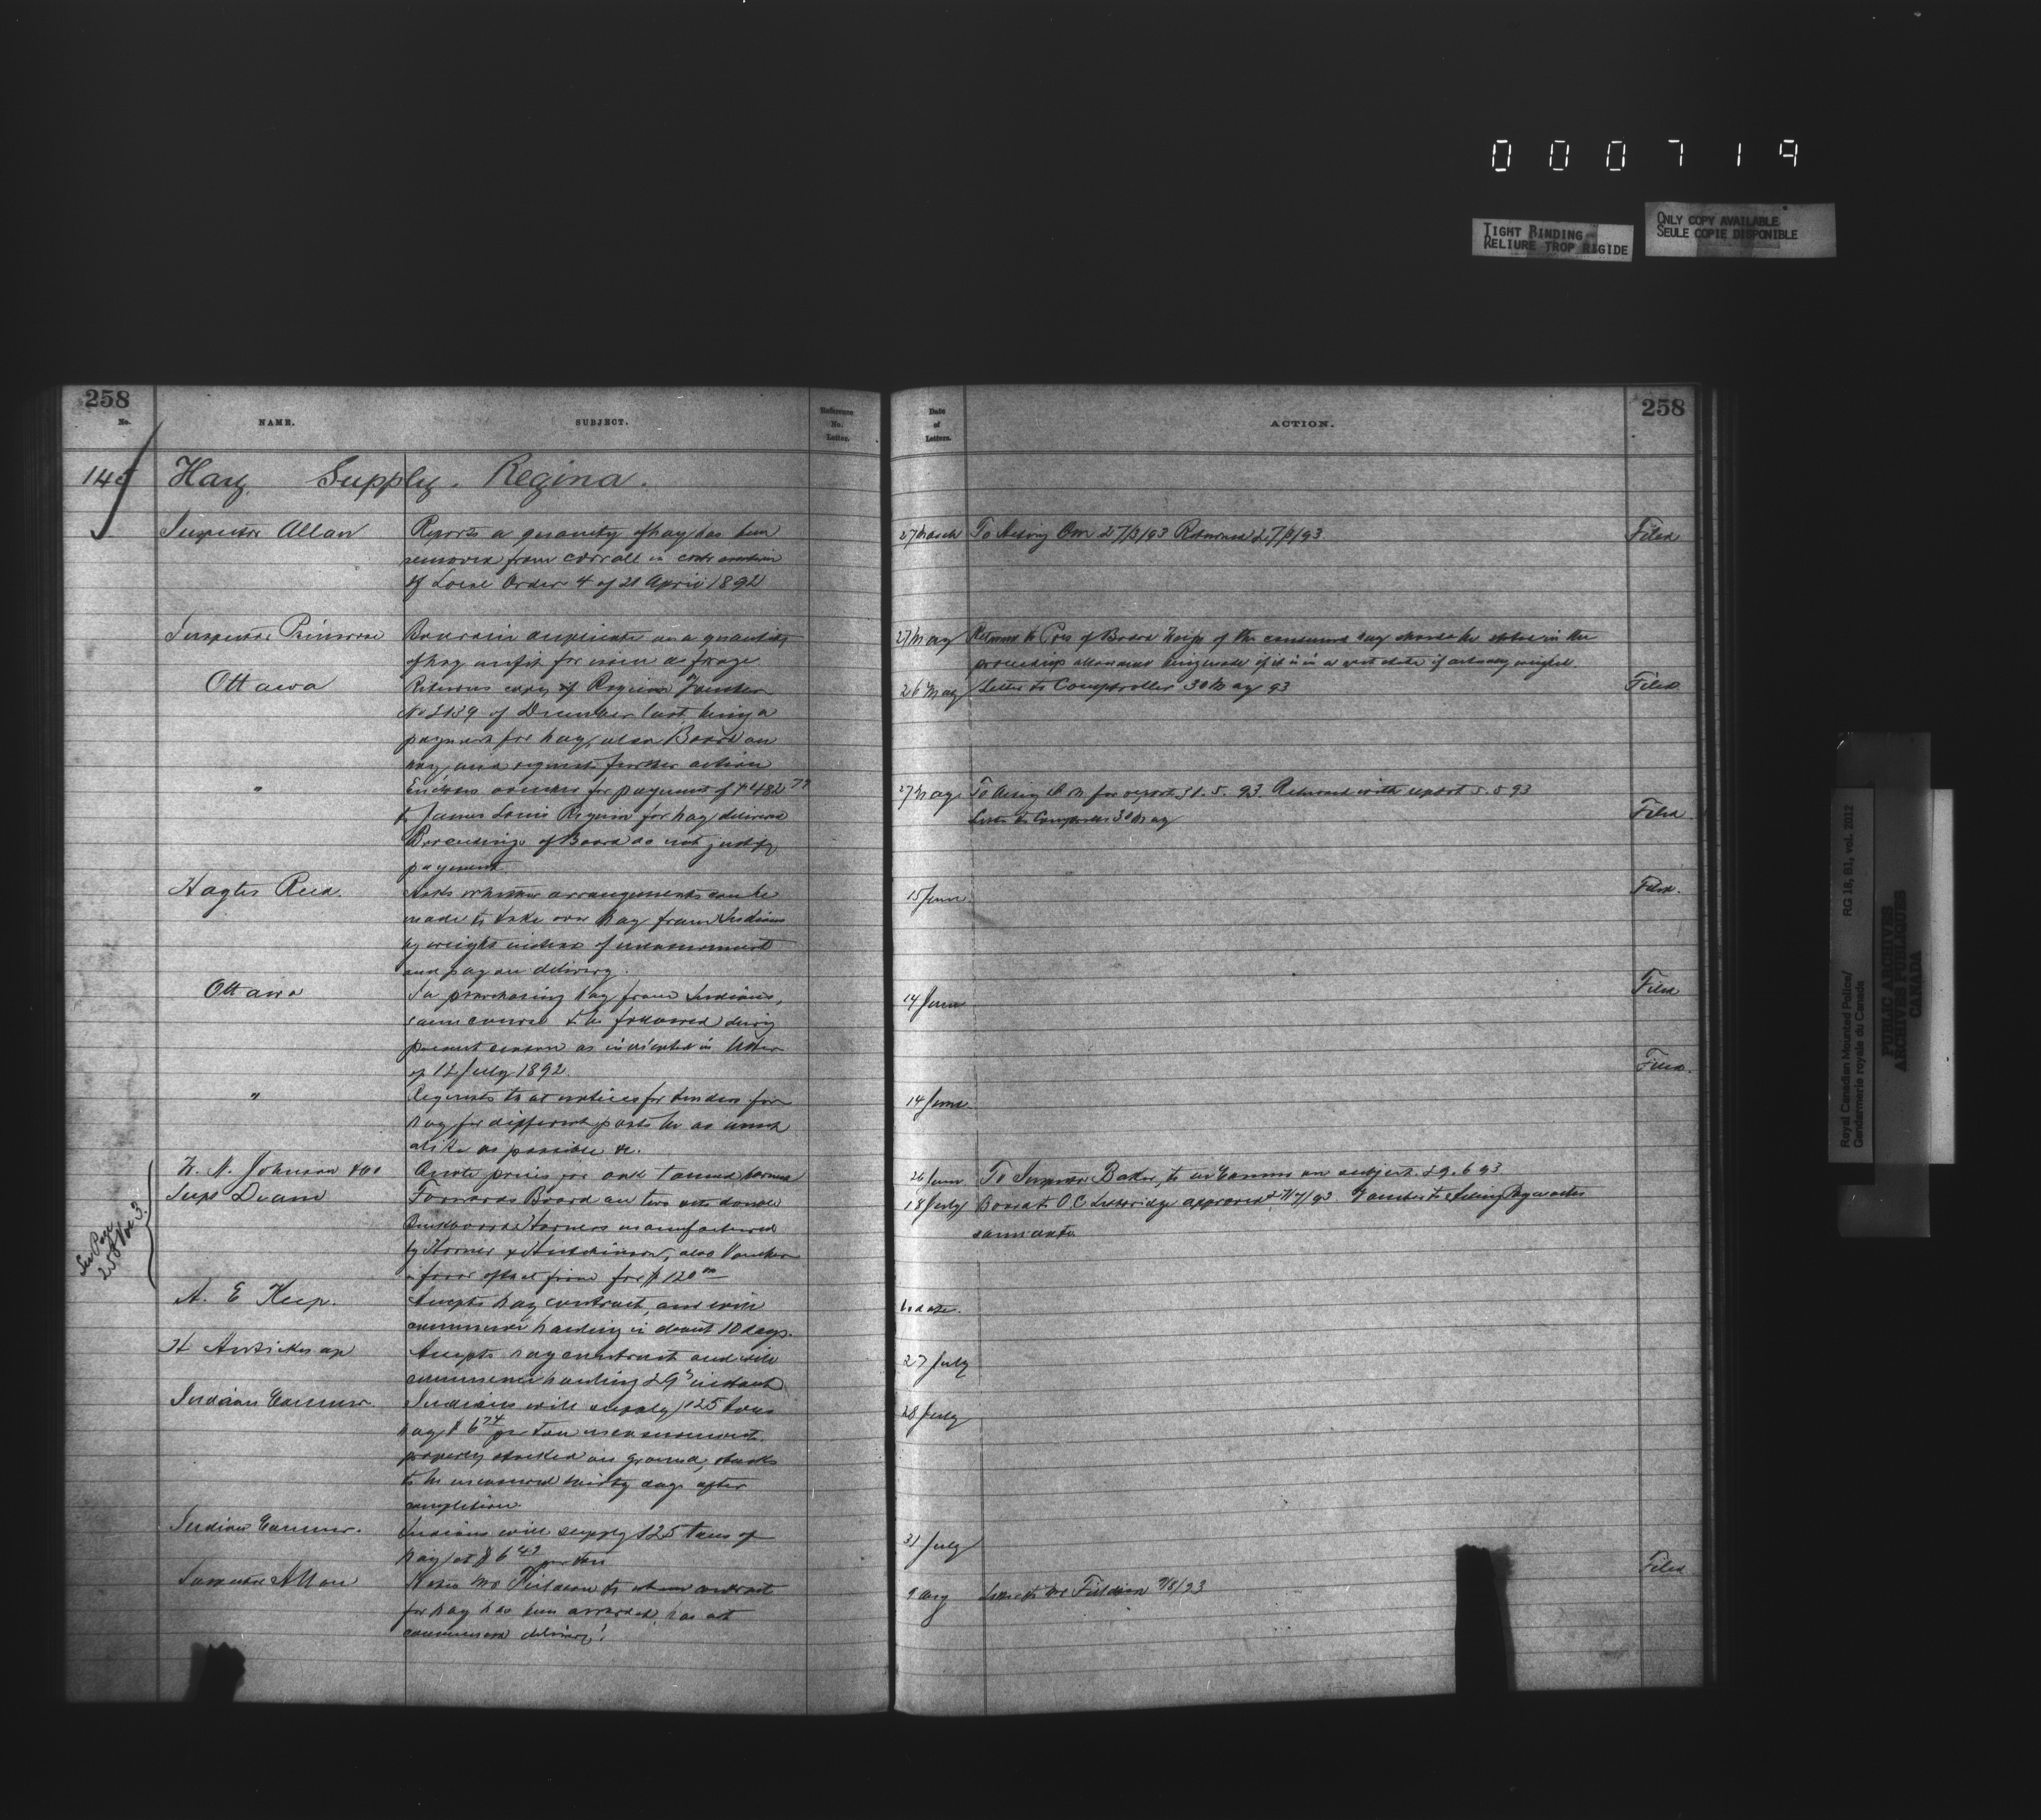 000719
TIGHT BINDING
RELIURE TROP RIGIDE
ONLY COPY AVAILABLE
SEULE COPIE DISPONIBLE
258
No.
NAME.
SUBJECT.
Reference
No.
Letter.
Date
of
Letters.
ACTION.
258
145 Hay Supply. Regina.
Inspector Allan
Reports a quantity of hay has been
removed from corrall in contravention
of Local Order 4 of 21 April 1892
27 March To Acting Com 27/3/93 Returned 27/3/93
Filed
Inspector Primrose
Board in duplicate on a quantity
of hay unfit for issue as forage
27 May Return to Pres of Board Weight of the consumed hay should be stated in the
proceedings allowance being made if it is in a wet state if actually weighed
Ottawa
Returns copy of Regina Voucher
of December last, being a
payment for hay, also Board on
hay, and requests further action
26 May Letter to Comptroller 30 May 93
Filed
"
Encloses voucher for payment of $482 79
to James Louis Regina for hay delivered
Proceedings of Board do not justify
payment
27 May To Acting Q M for report 31.5.93. Returned with report
Letter to Comptroller 30 May
Filed
Hayter Reed.
Asks whether arrangements can be
made to take over hay from Indians
by weight instead of measurement
and pay on delivery.
15 June
Filed.
Ottawa
In purchasing hay from Indians,
same course to be followed during
present season as indicated in letter
of 12 July 1892.
14 June
Filed
"
Requests that notices for tenders for
hay for different posts be as much
alike as possible &c.
14 June
Filed.
H. N. Johnson & Co
Quote prices for oak tanned harness
26 June To Inspector Baker, to on subject 29.6.93
Supt Deane
Forwards Board on two sets double
Buckboard Harness manufactured
by Horner & Hutchinson, also Voucher
in favor of that firm for $120 00
18 July Board to O.C. Lethbridge approved Voucher to Acting Paymaster
same date
See Page
258 Vol 3.
A. E. Keep.
Accepts hay contract, and will
commence hauling in about 10 days.
No date.
Accepts hay contract and will
commence hauling 29th instant
27 July
Indian Commr.
Indians will supply 125 tons
hay $6 74 per ton measurement.
properly stacked on ground, stacks
to be measured thirty days after
completion
28 July
Indian Commr.
Indians will supply 125 tons of
hay at $6 49 per ton
31 July
Inspector Allan
Notes Mr Fieldson to whom contract
for hay has been awarded, has not
commenced delivery.
9 Aug Letter to Mr Fieldson 9/8/93
Filed
Royal Canadian Mounted Police/ RG 18, B1, vol. 2012
Gendarmerie royale du Canada
PUBLIC ARCHIVES
ARCHIVES PUBLIQUES
CANADA